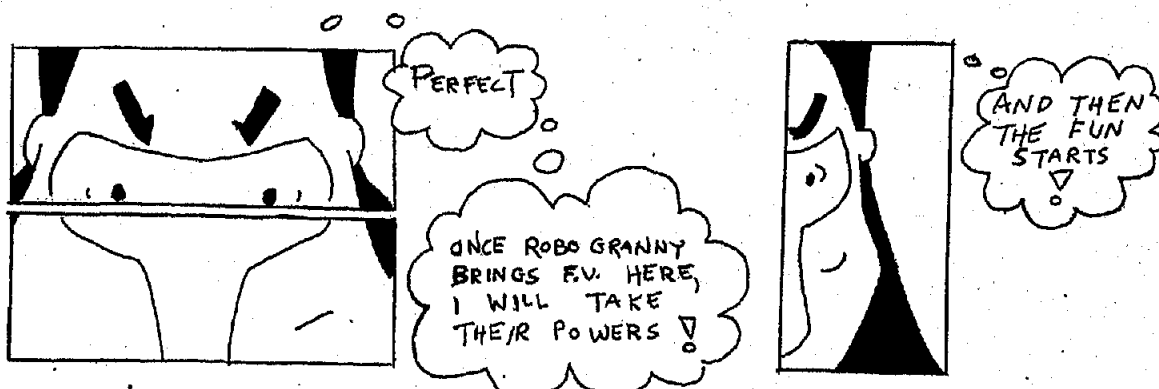 PERFECT
ONCE ROBO GRANNY
BRINGS F.V. HERE,
I WILL TAKE
THEIR POWERS !
AND THEN
THE FUN
STARTS
!